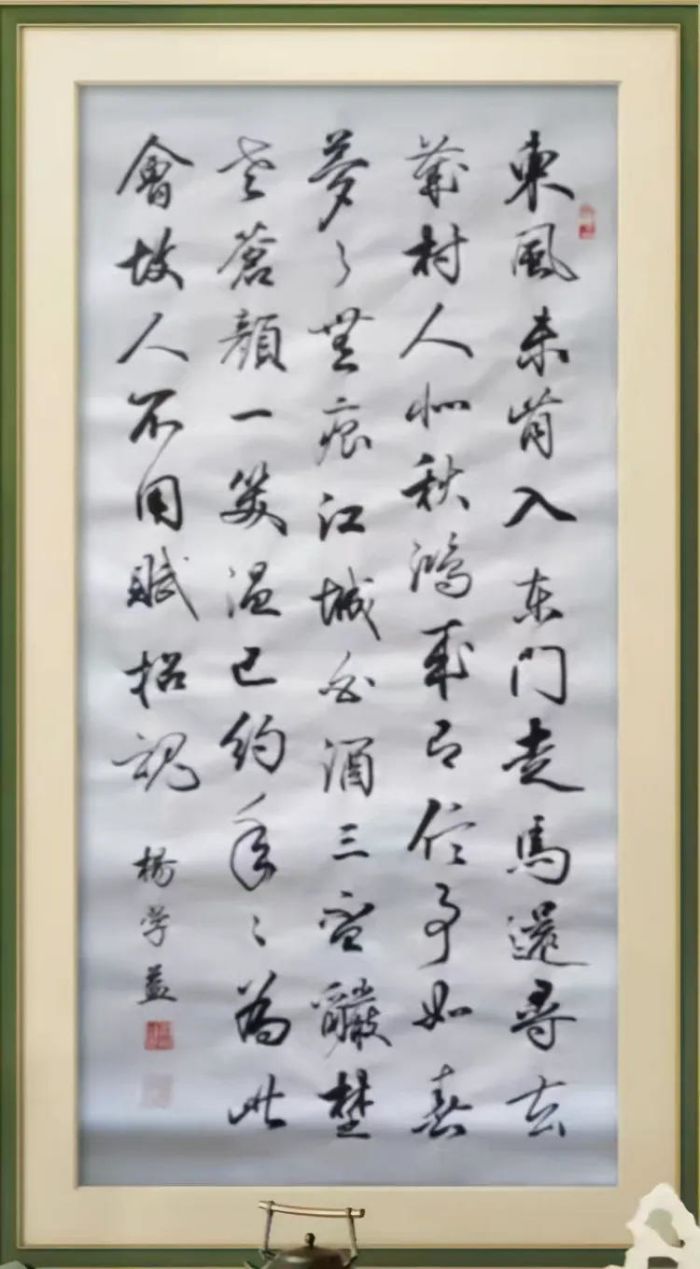 東風未肯入东门走馬還尋去
歲村人似秋鴻來有信事如春
夢了無痕江城白酒三盃釅埜
老蒼顔一笑温已約年々為此
會故人不用賦招魂
楊学益